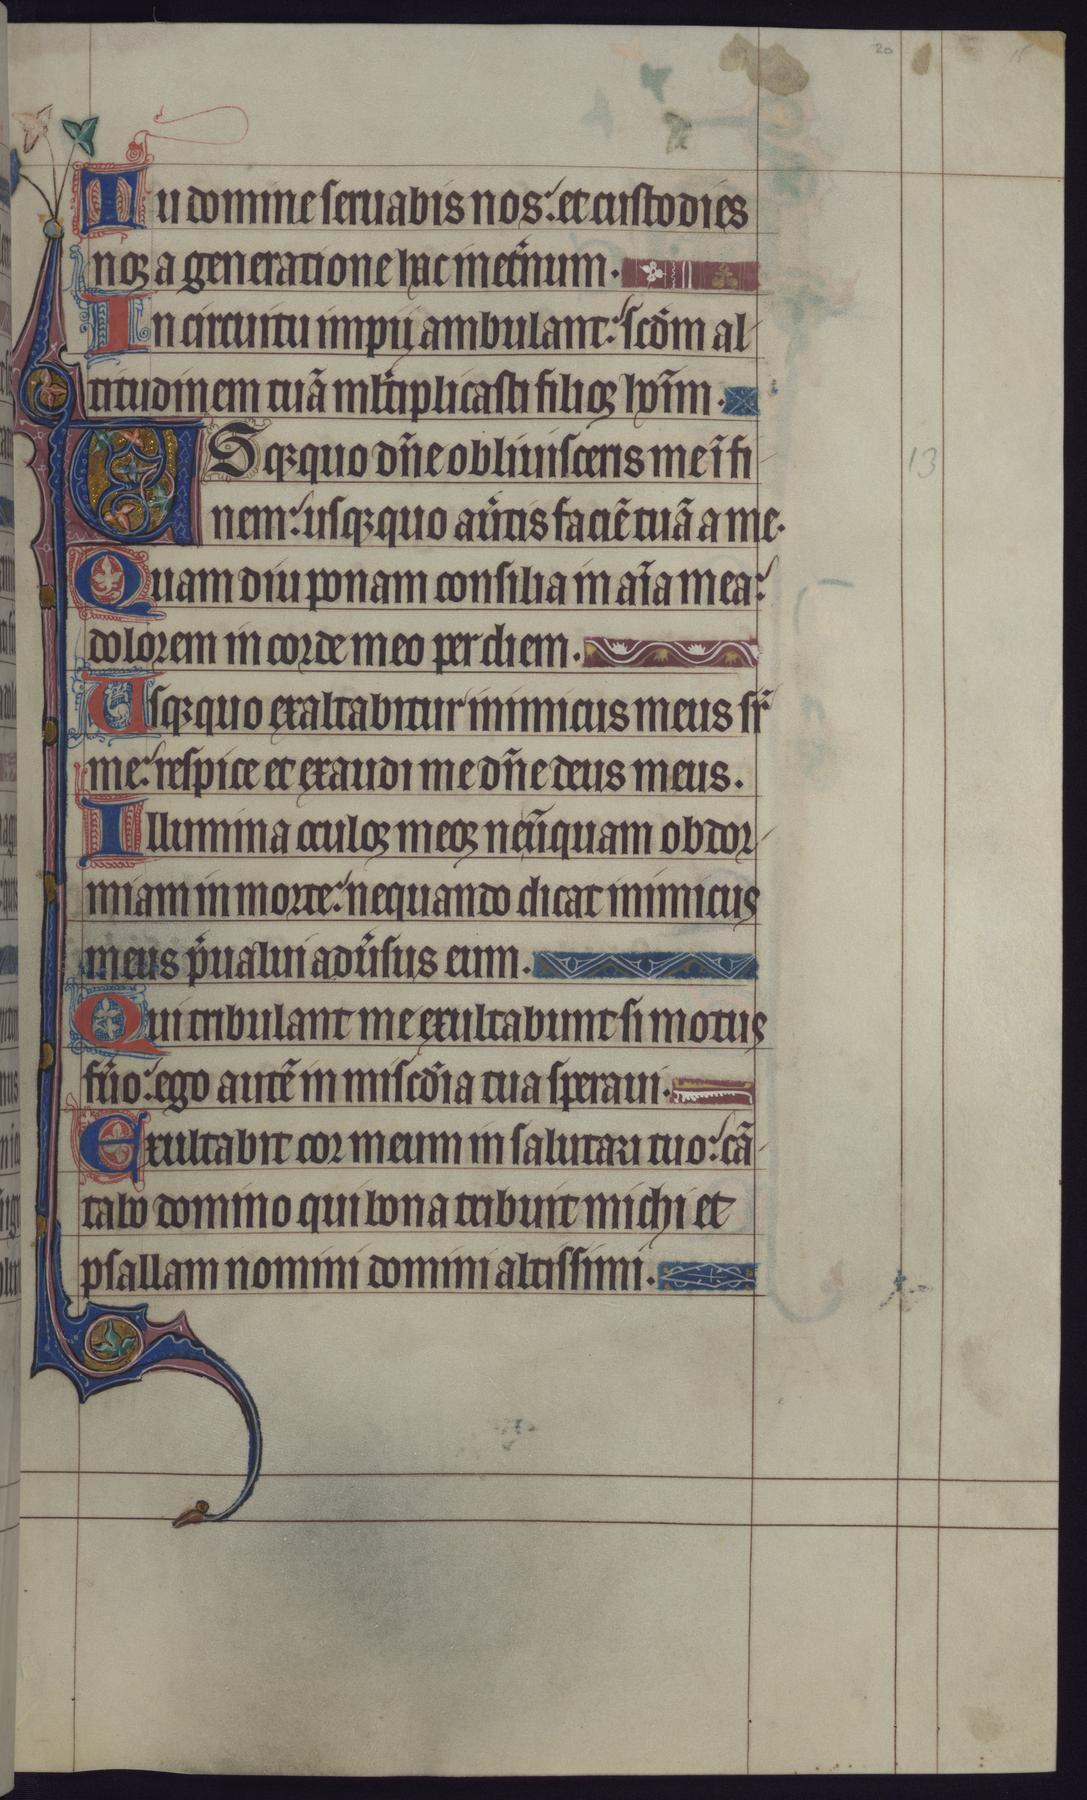 20 15
Tu domine seruabis nos: et custodies
noꝫ a generatione hac inet̾num.
In circuitu impij ambulant: scd̄m al-
titudinem tuā ml̾tiplicasti filioꝫ hoı̄m.
USqꝫquo dn̄e obliuisceris me ī fi-
nem: usqꝫquo au̾tis faciē tuā a me.
Quam diu ponam consilia in aı̄a mea:
dolorem in corde meo per diem.
Usqꝫquo exaltabitur inimicus meus sr̄
me: respice et exaudi me dn̄e deus meus.
Illumina oculoꝫ meoꝫ neūquam obdor-
miam in morte: nequando dicat inimicus
meus p̄ualui adu̾sus eum.
Qui tribulant me exultabunt si motus
fu̾o: ego autē in miscd̄ia tua speraui.
Exultabit cor meum in salutari tuo: cā-
tabo domino qui bona tribuit michi et
psallam nomini domini altissimi.
13